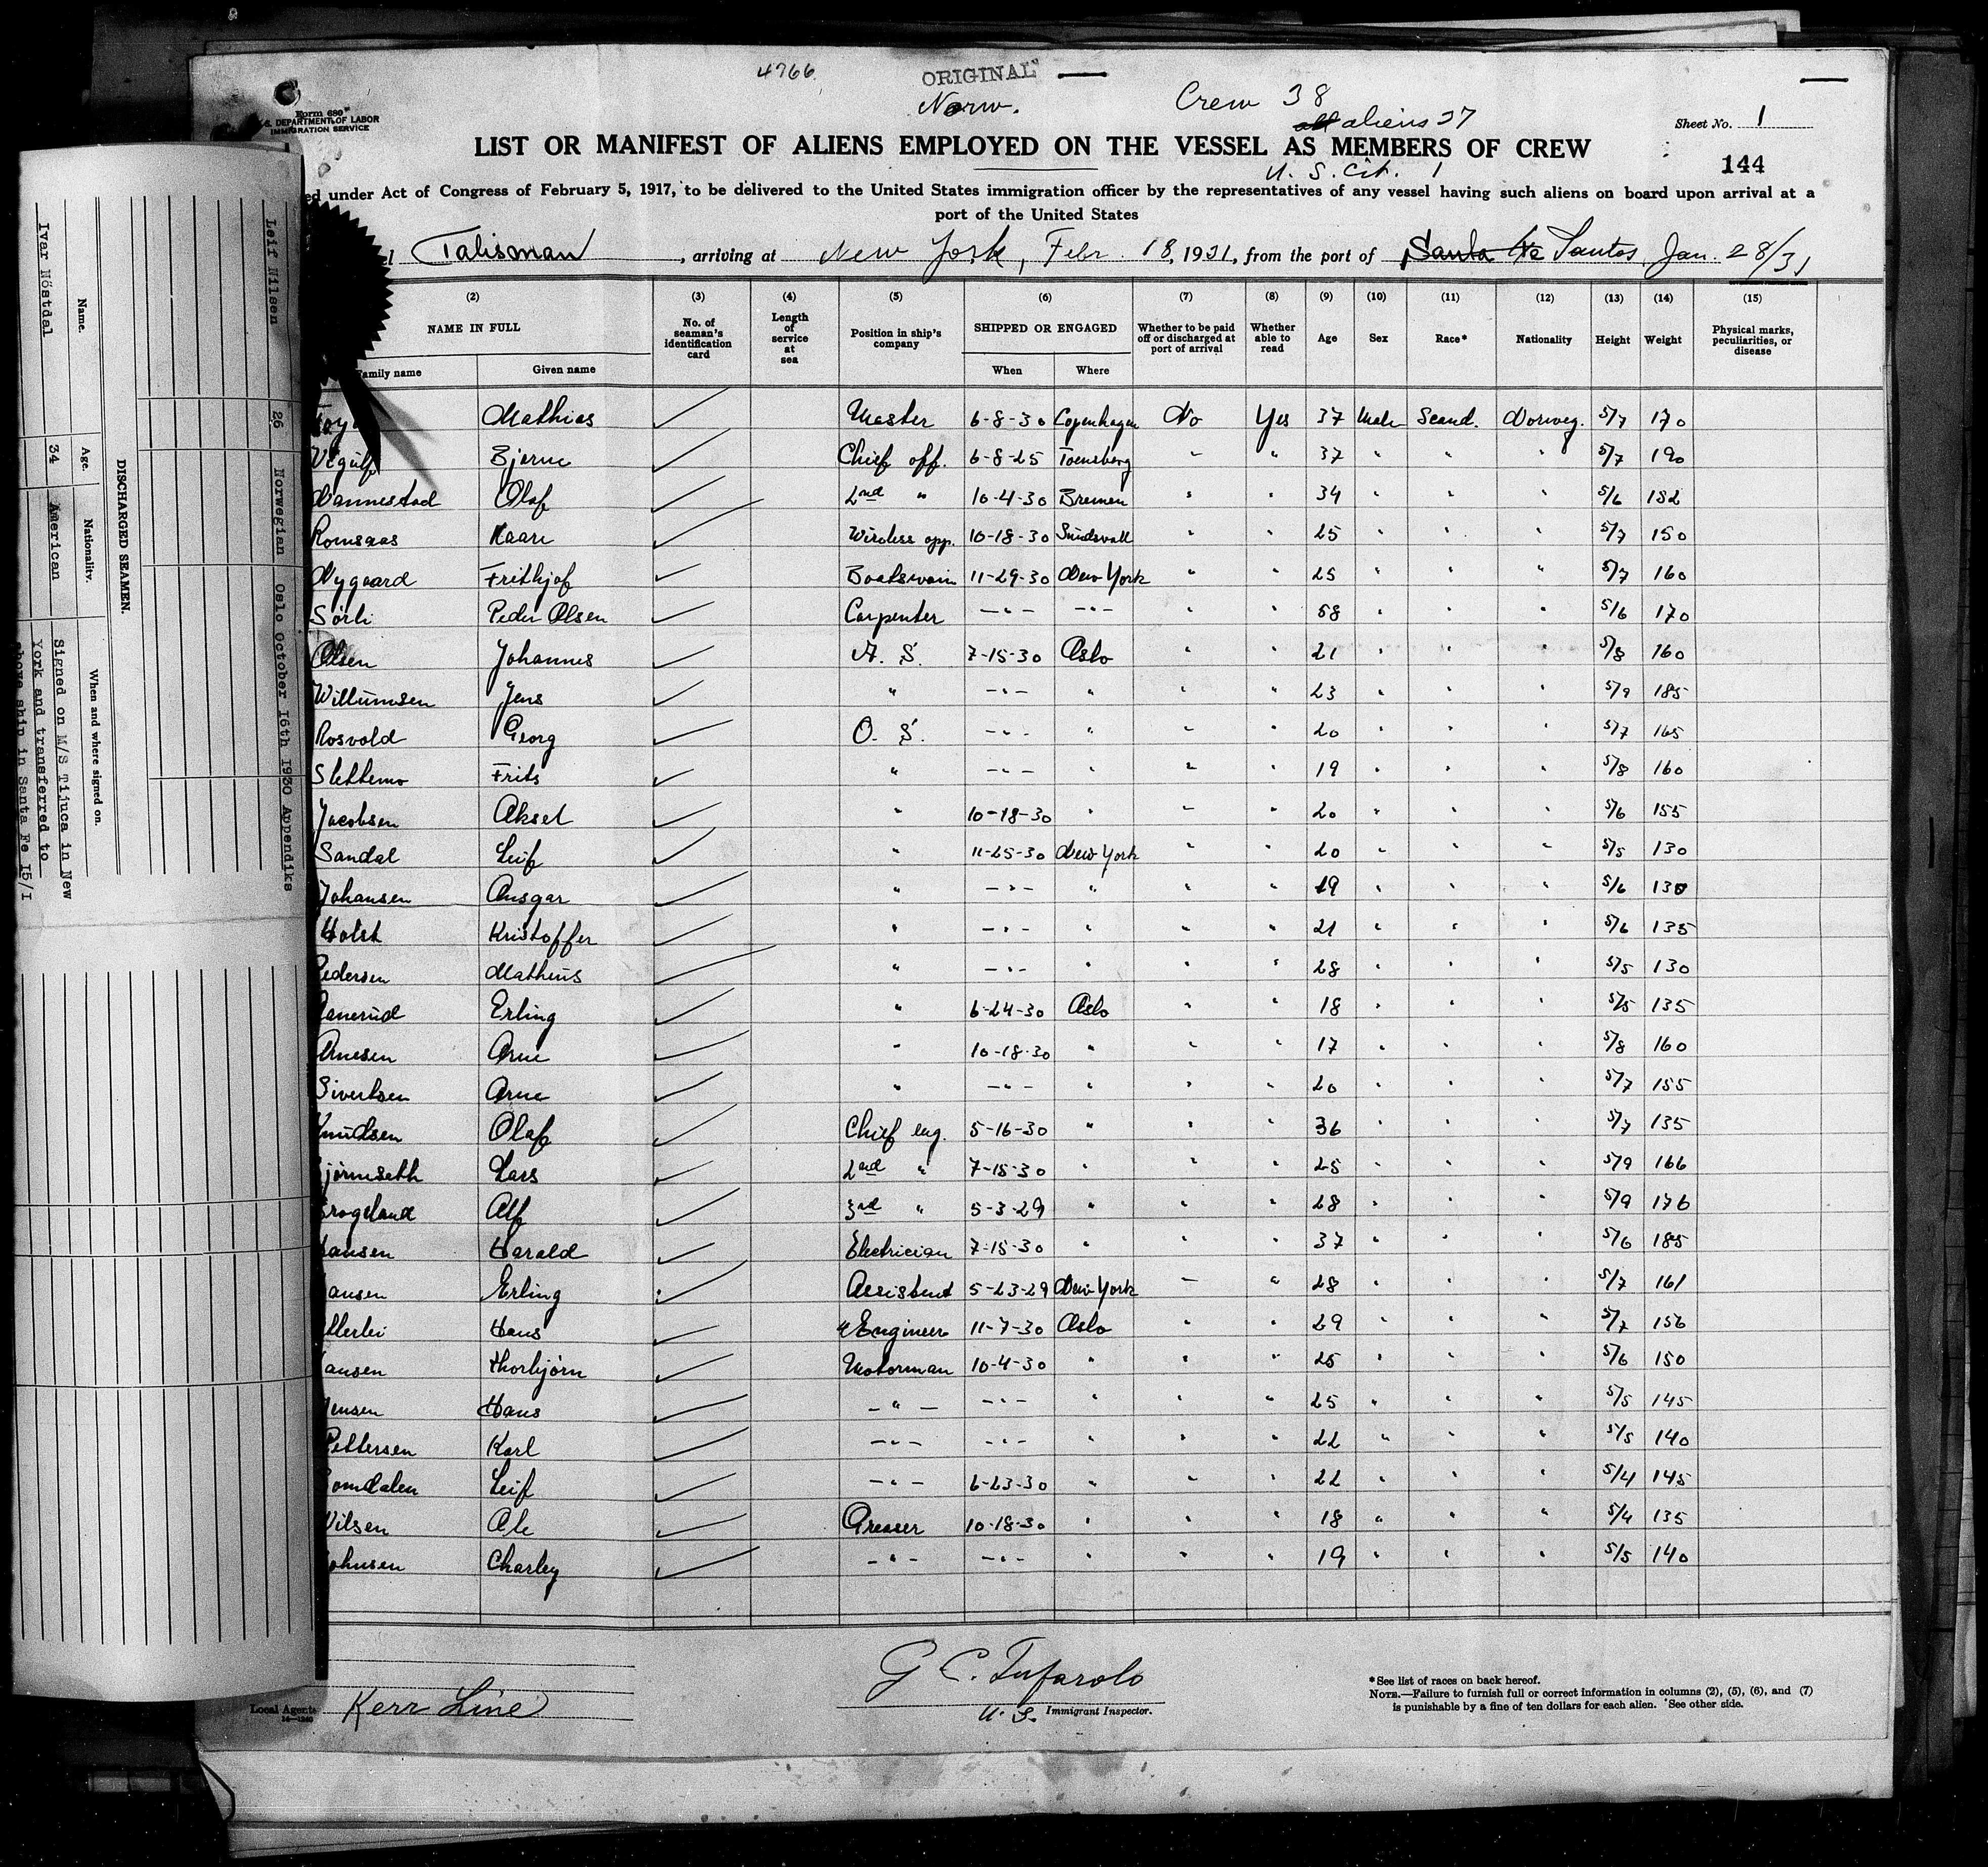 4766
ORIGINAL
Norw.
Crew 38
all aliens 37
U.S. Cit. 1
Form 680
DEPARTMENT OF LABOR
IMMIGRATION SERVICE
Sheet No. 1
144
LIST OR MANIFEST OF ALIENS EMPLOYED ON THE VESSEL AS MEMBERS OF CREW
under Act of Congress of February 5, 1917, to be delivered to the United States immigration officer by the representatives of any vessel having such aliens on board upon arrival at a
port of the United States
Talisman, arriving at New York, Febr. 18, 1931, from the port of Santa Fe Santos, Jan. 28/31
(2) (3) (4) (5) (6) (7) (8) (9) (10) (11) (12) (13) (14) (15)
NAME IN FULL No. of seaman's identification card Length of service at sea Position in ship's company SHIPPED OR ENGAGED Whether to be paid off or discharged at port of arrival Whether able to read Age Sex Race* Nationality Height Weight Physical marks, peculiarities, or disease
Family name Given name When Where
Mathias Master 6-8-30 Copenhagen No Yes 37 Male Scand. Norweg. 5/7 170
Bjarne Chief off. 6-8-25 Toensberg " " 37 " " " 5/7 190
Nannestad Olaf 2nd " 10-4-30 Bremen " " 34 " " " 5/6 182
Romsaas Kaare Wireless opp. 10-18-30 Sundsvall " " 25 " " " 5/7 150
Nygaard Frithjof Boatswain 11-29-30 New York " " 25 " " " 5/7 160
Sörli Peder Olsen Carpenter -"- -"- " " 58 " " " 5/6 170
Olsen Johannes A. S. 7-15-30 Oslo " " 21 " " " 5/8 160
Willumsen Jens " -"- " " " 23 " " " 5/9 185
Rosvold Georg O. S. -"- " " " 20 " " " 5/7 165
Slettemo Frits " -"- " " " 19 " " " 5/8 160
Jacobsen Aksel " 10-18-30 " " " 20 " " " 5/6 155
Sandal Leif " 11-25-30 New York " " 20 " " " 5/5 130
Johansen Ansgar " -"- " " " 19 " " " 5/6 130
Holst Kristoffer " -"- " " " 21 " " " 5/6 135
Pedersen Matheus " -"- " " " 28 " " " 5/5 130
Erling " 6-24-30 Oslo " " 18 " " " 5/5 135
Arnesen Arne " 10-18-30 " " " 17 " " " 5/8 160
Sivertsen Arne " -"- " " " 20 " " " 5/7 155
Knudsen Olaf Chief eng. 5-16-30 " " " 36 " " " 5/7 135
Lars 2nd " 7-15-30 " " " 25 " " " 5/9 166
Alf 3rd " 5-3-29 " " " 28 " " " 5/9 176
Hansen Harald Electrician 7-15-30 " " " 37 " " " 5/6 185
Hansen Erling Assistent 5-23-29 New York " " 28 " " " 5/7 161
Hans Engineer 11-7-30 Oslo " " 29 " " " 5/7 156
Hansen Thorbjørn Motorman 10-4-30 " " " 25 " " " 5/6 150
Jensen Hans -"- -"- " " " 25 " " " 5/5 145
Pettersen Karl -"- -"- " " " 22 " " " 5/5 140
Leif -"- 6-23-30 " " " 22 " " " 5/4 145
Nilsen Ale Greaser 10-18-30 " " " 18 " " " 5/4 135
Johnsen Charley -"- -"- " " " 19 " " " 5/5 140
Local Agents Kerr Line
G C. Tufarolo
U. S. Immigrant Inspector.
*See list of races on back hereof.
NOTE.—Failure to furnish full or correct information in columns (2), (5), (6), and (7)
is punishable by a fine of ten dollars for each alien. See other side.
DISCHARGED SEAMEN.
Name. Age. Nationality. When and where signed on.
Leif Nilsen 26 Norwegian Oslo October 16th 1930 Appendiks
Ivar Nöstdal 34 American Signed on M/S Tijuca in New
York and transferred to
above ship in Santa Fe 15/I